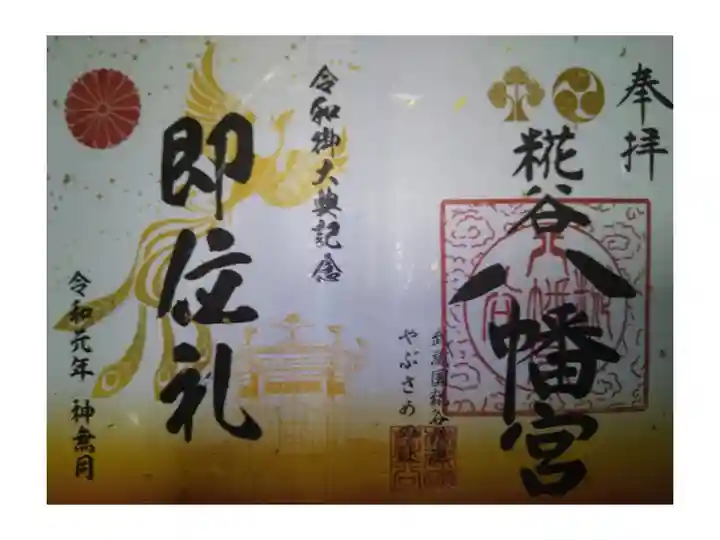 奉拝
糀谷八幡宮
武蔵国糀谷
やぶさめ
令和御大典記念
即位礼
令和元年 神無月